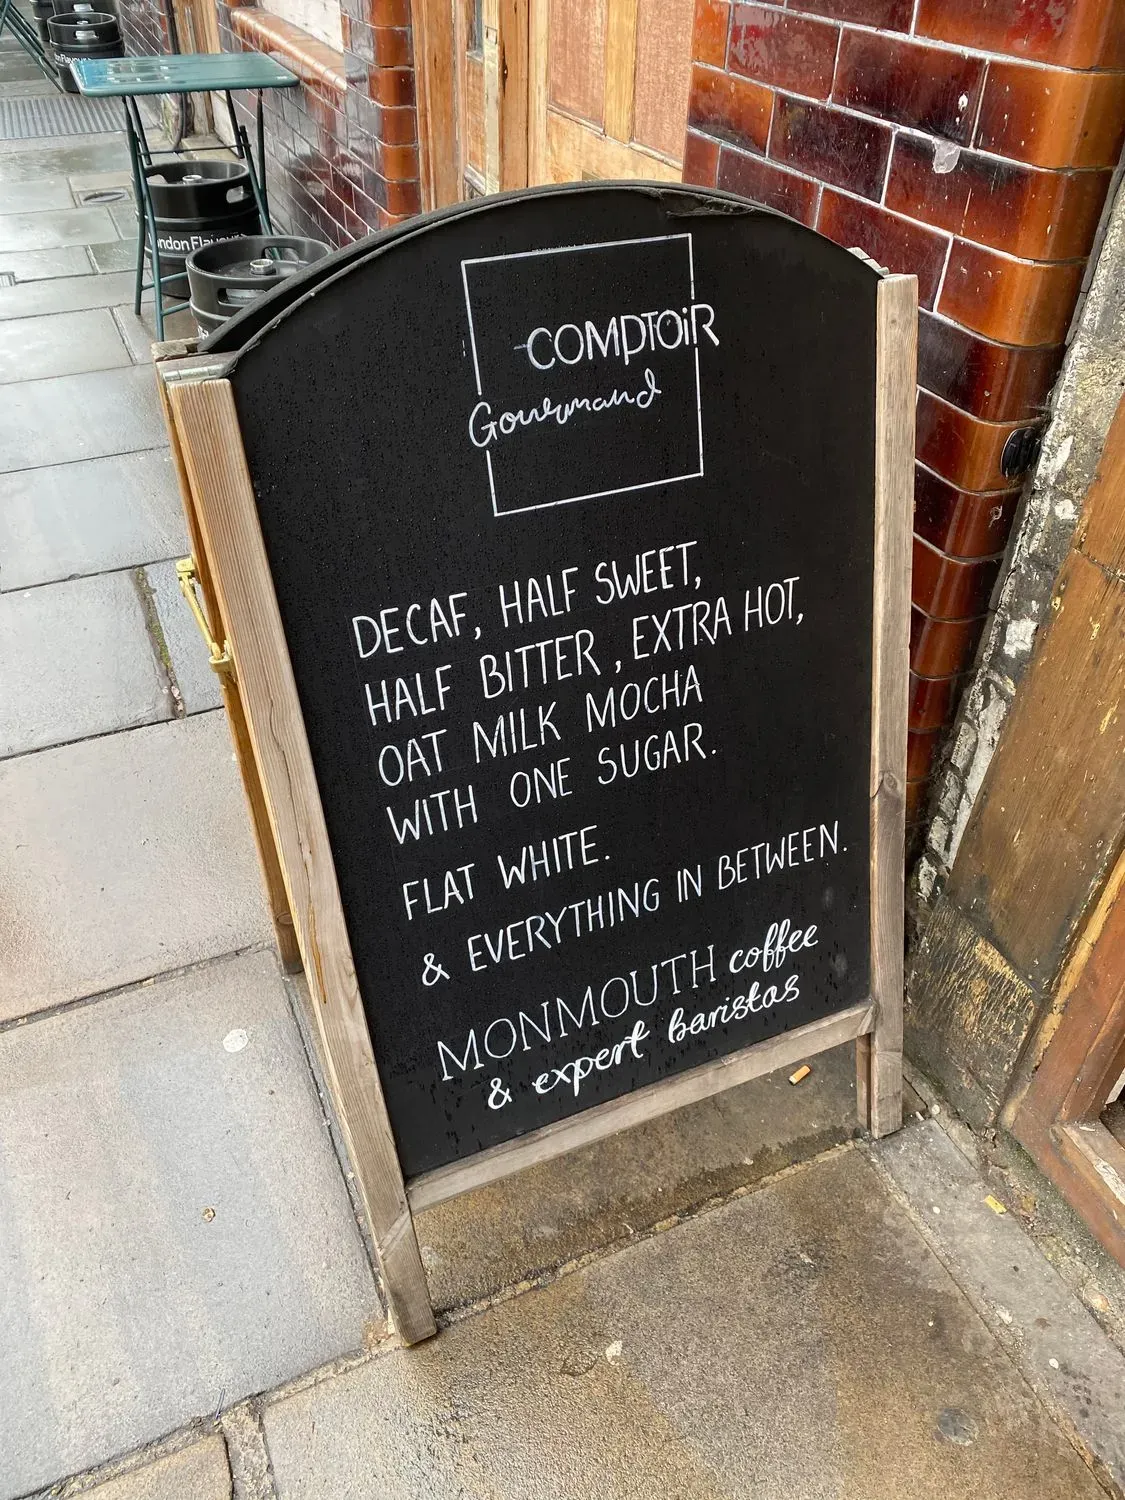 COMPTOiR
Gourmand
DECAF, HALF SWEET,
HALF BITTER, EXTRA HOT,
OAT MILK MOCHA
WITH ONE SUGAR.
FLAT WHITE.
& EVERYTHING IN BETWEEN.
MONMOUTH coffee
& expert baristas
London Flavour